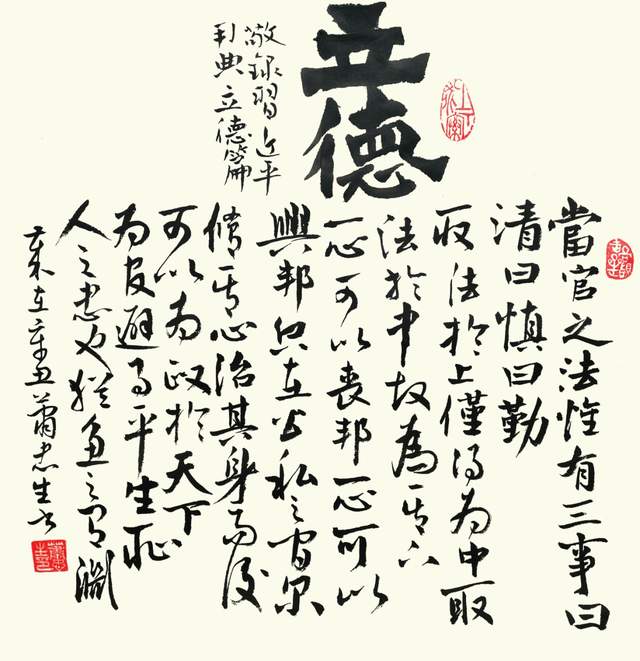 立德
敬録習近平
用典立德篇
當官之法惟有三事曰
清曰慎曰勤
取法於上僅得為中取
法於中故為其下
一心可以喪邦一心可以
興邦只在公私之間尔
脩其心治其身而後
可以為政於天下
為官避事平生恥
人之忠也猶魚之有淵
蕭忠生书